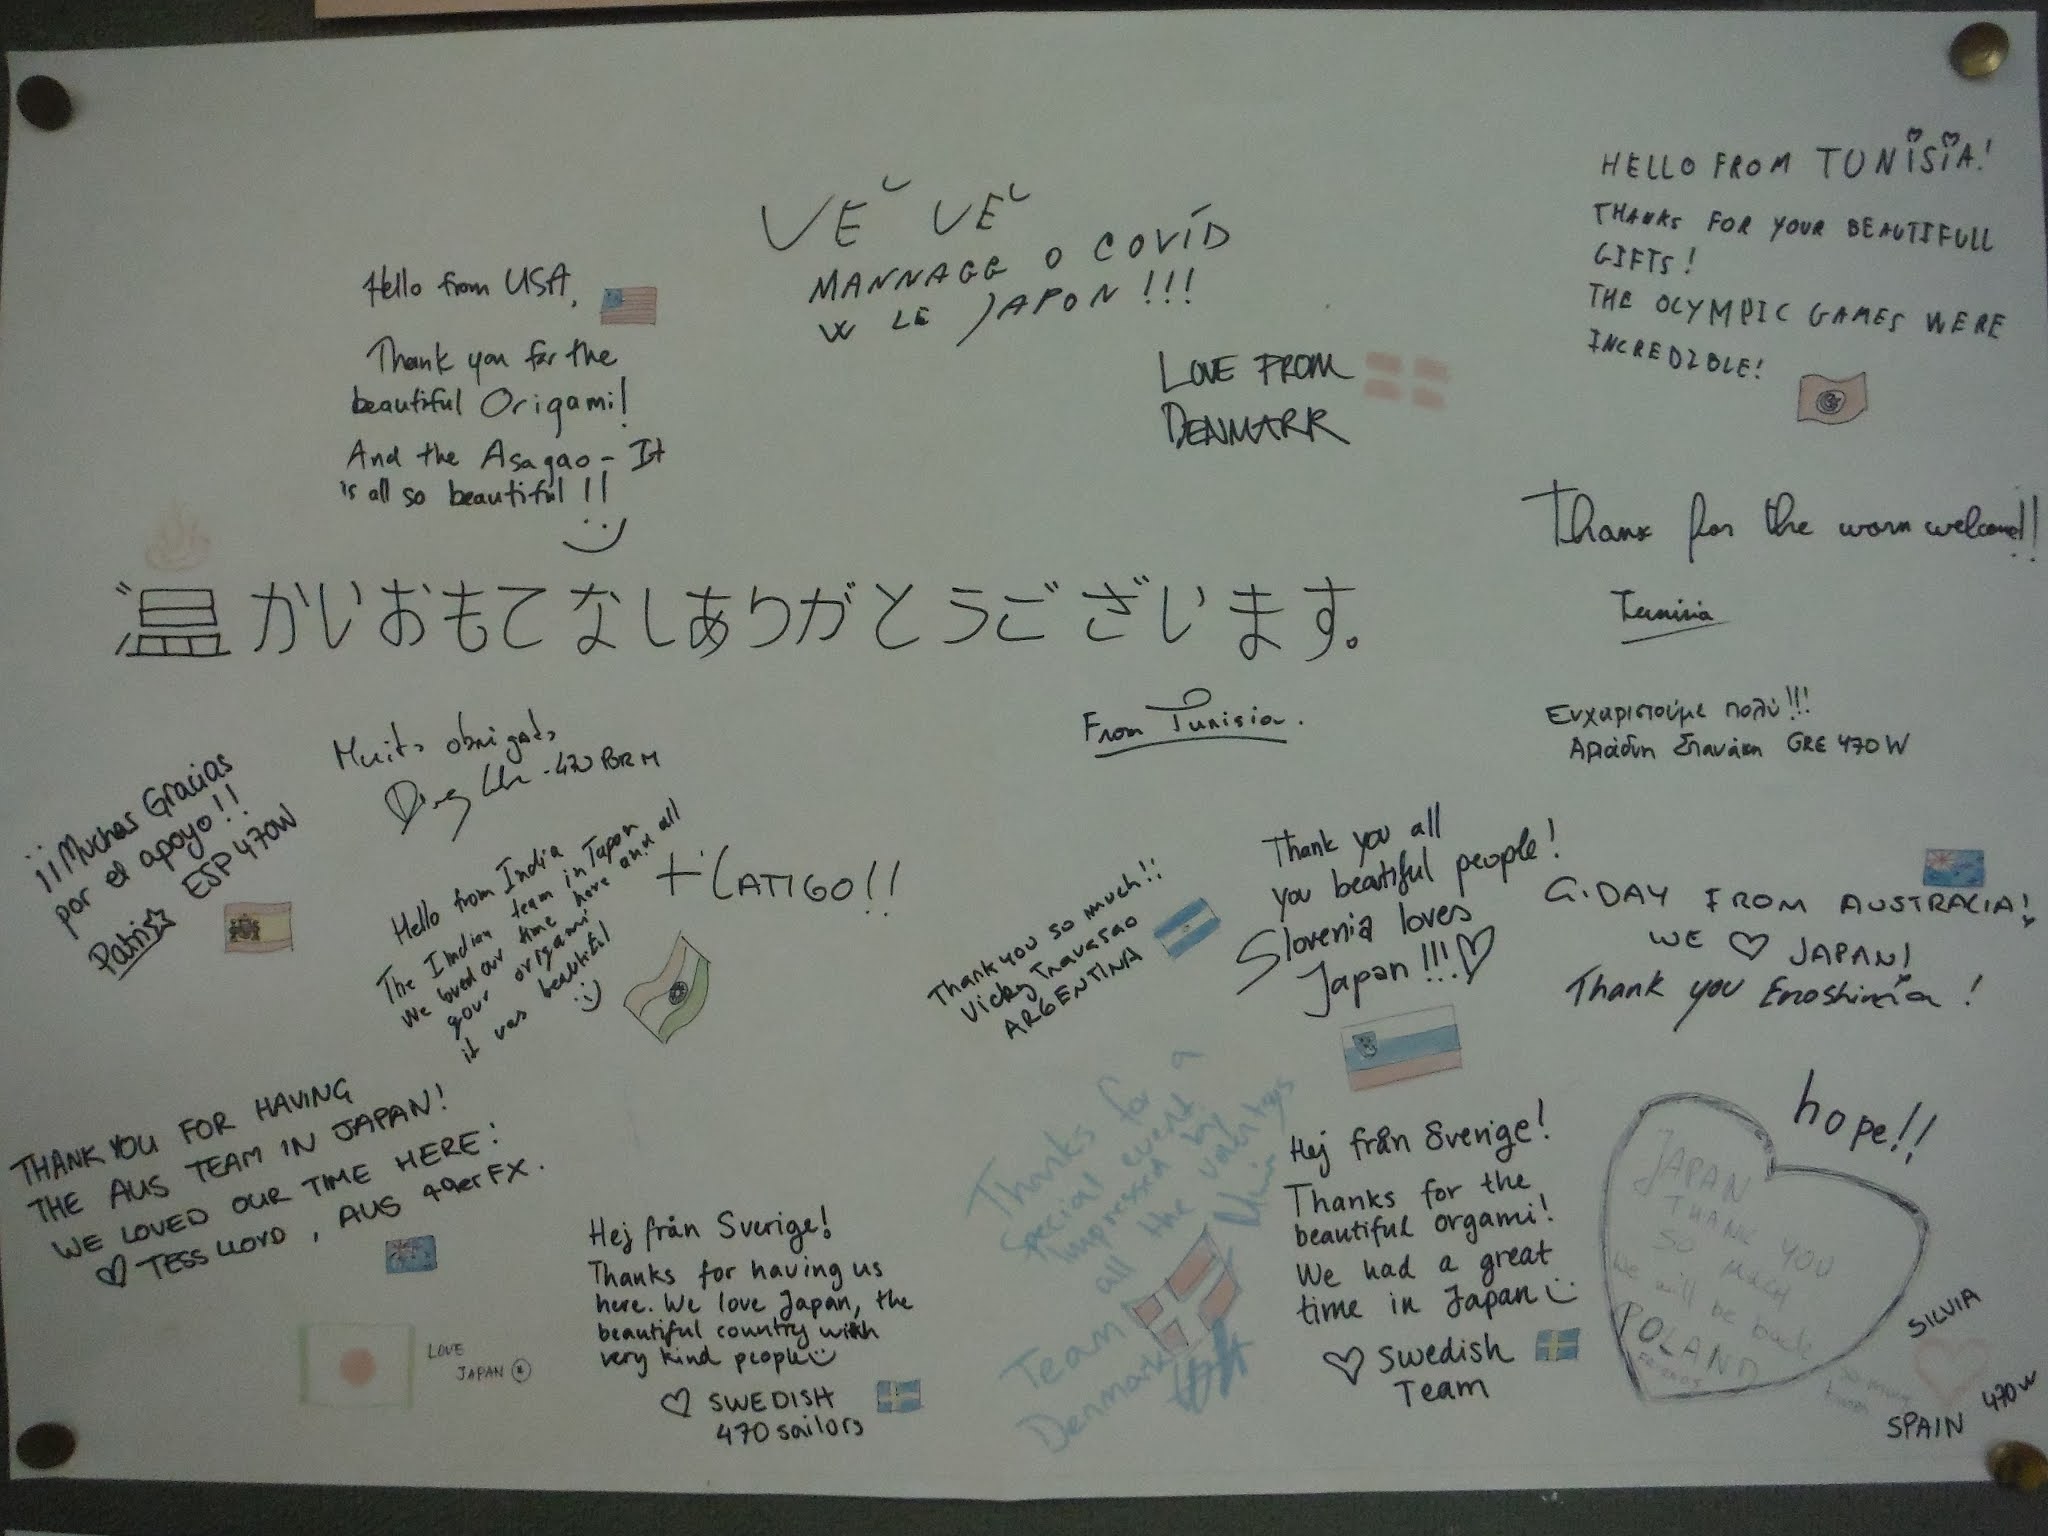 Hello from USA,
Thank you for the
beautiful Origami!
And the Asagao - It
is all so beautiful !!
VE VE
MANNAGG O COVÍD
W LE JAPON !!!
LOVE FROM
DENMARK
HELLO FROM TUNISIA!
THANKS FOR YOUR BEAUTIFULL
GIFTS!
THE OLYMPIC GAMES WERE
INCREDIBLE!
Thanx for the worm welcome!!
Tunisia
温かいおもてなしありがとうございます。
From Tunisia.
Ευχαριστούμε πολύ!!!
Αριάδνη Σπανάκη GRE 470W
¡¡¡Muchas Gracias
por el apoyo!!
Patri ESP 470W
Muito obrigado
470 BRA M
Hello from India
The Indian team in Japan
We loved our time here and all
your origami
it was beautiful
:)
+'CATIGO!!
Thank you so much!!
Vicky Travasao
ARGENTINA
Thank you all
you beautiful people!
Slovenia loves
Japan!!! ♡
G'DAY FROM AUSTRALIA!
WE ♡ JAPAN!
Thank you Enoshima!
THANK YOU FOR HAVING
THE AUS TEAM IN JAPAN!
WE LOVED OUR TIME HERE:
♡ TESS LLOYD, AUS 49er FX.
LOVE
JAPAN
Hej från Sverige!
Thanks for having us
here. We love Japan, the
beautiful country with
very kind people
♡ SWEDISH
470 sailors
Thanks for a
special event.
Impressed by
all the
Team
Denmark
Hej från Sverige!
Thanks for the
beautiful orgami!
We had a great
time in Japan
♡ Swedish
Team
hope!!
JAPAN
THANK YOU
SO MUCH
We will be back
POLAND
SILVIA
SPAIN 470W